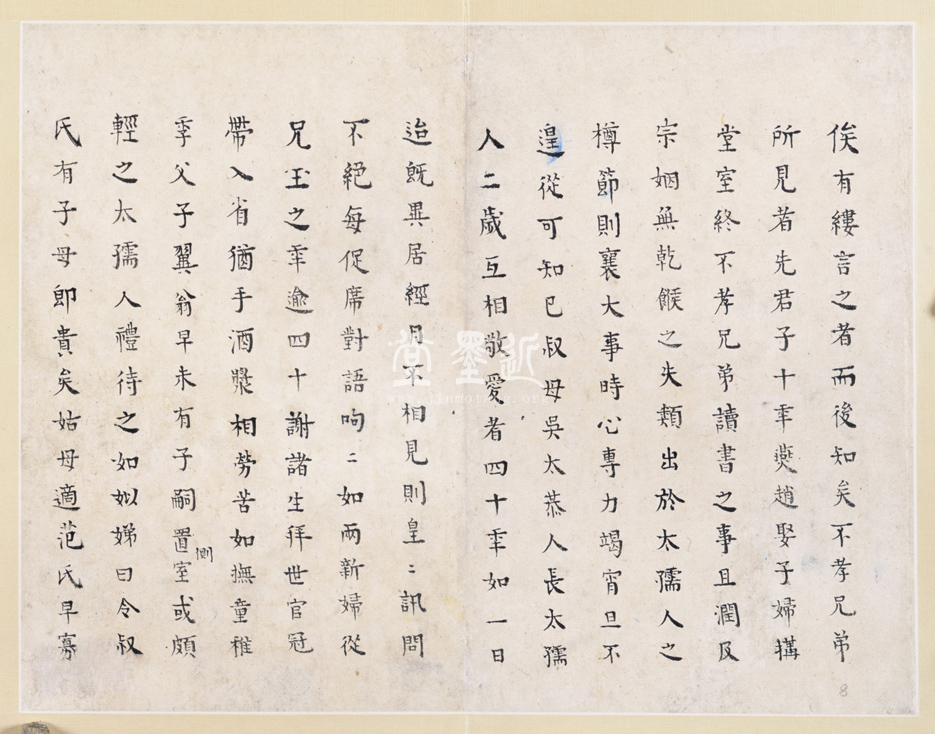 俟有縷言之者而後知矣不孝兄弟
所見者先君子十年燕趙娶子婦搆
堂室終不孝兄弟讀書之事且潤及
宗姻無乾餱之失類出於太孺人之
樽節則襄大事時心專力竭宵旦不
遑從可知已叔母吳太恭人長太孺
人二歲互相敬愛者四十年如一日
迨既異居經月不相見則皇〻訊問
不絕每促席對語呴〻如兩新婦從
兄玉之年逾四十謝諸生拜世官冠
帶入省猶手酒漿相勞苦如撫童稚
季父子翼翁早未有子嗣置側室或頗
輕之太孺人禮待之如姒娣曰令叔
氏有子母即貴矣姑母適范氏早寡
逝墨堂
8